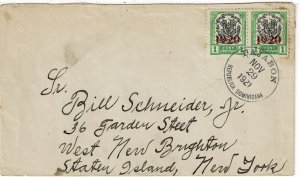 1920 1920
1 1
DAJABON
NOV
29
1921
REPUBLICA DOMINICANA
Sr.
Bill Schneider, Jr.
36 Garden Steet
West New Brighton
Staten Island, New York